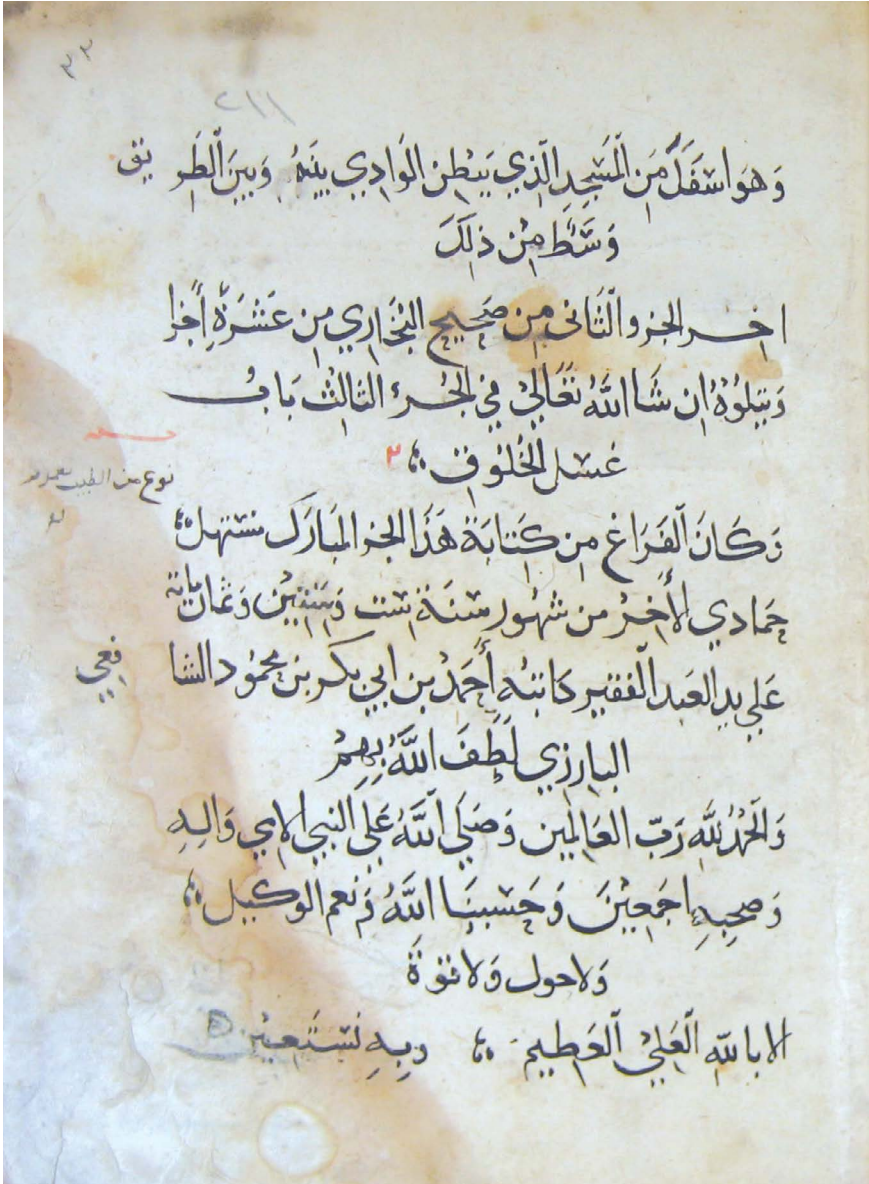 ٣٣
٢١١
وَهوَ اسْفَلُ مِّنَ الْمَسْجِدِ الَّذِي بِبَطِنِ الْوَادِي بينَهُ وَبَينَ الْطَرِيق
وَسَّطَ مِن ذلِكَ
اخر الجزو الثَّانى مِن صَحِيحِ البُخَارِي مِن عَشَرَةِ أجزا
وَيتلوُهُ ان شَا اللَّهُ تَعَالىْ فىِ الجُزءِ الثالِث بَابُ
غسل الخُلوُق
٢
نوع من الطيب
وَكَانَ الْفَرَاغ مِن كِتابَة هَذَا الجزِ المُبَارَك مستهل
جمادي الأَخِرْ من شهُورِ سنَة ست وَستيْن وَثمان مائه
عَلي يدِ العَبد الْفقيرِ كاتبُهِ أحمَد بن ابي بكر بن محمُود الشافعي
البارزي لَطَفَ اللَّهُ بِهِمْ
وَالحَمْدُ للَّهِ رَبّ العَالمِين وَصَلَي اللَّهُ عَلي النَبي الامي وَالِهِ
وَصَحبِهِ اجمَعِيْنَ وَحَسبنَا اللَّهُ وَنعم الوكيل
وَلا حول وَلا قوة
الا باللهِ الْعَلِيْ الْعَظِيم وبِهِ نَسْتَعِيْن